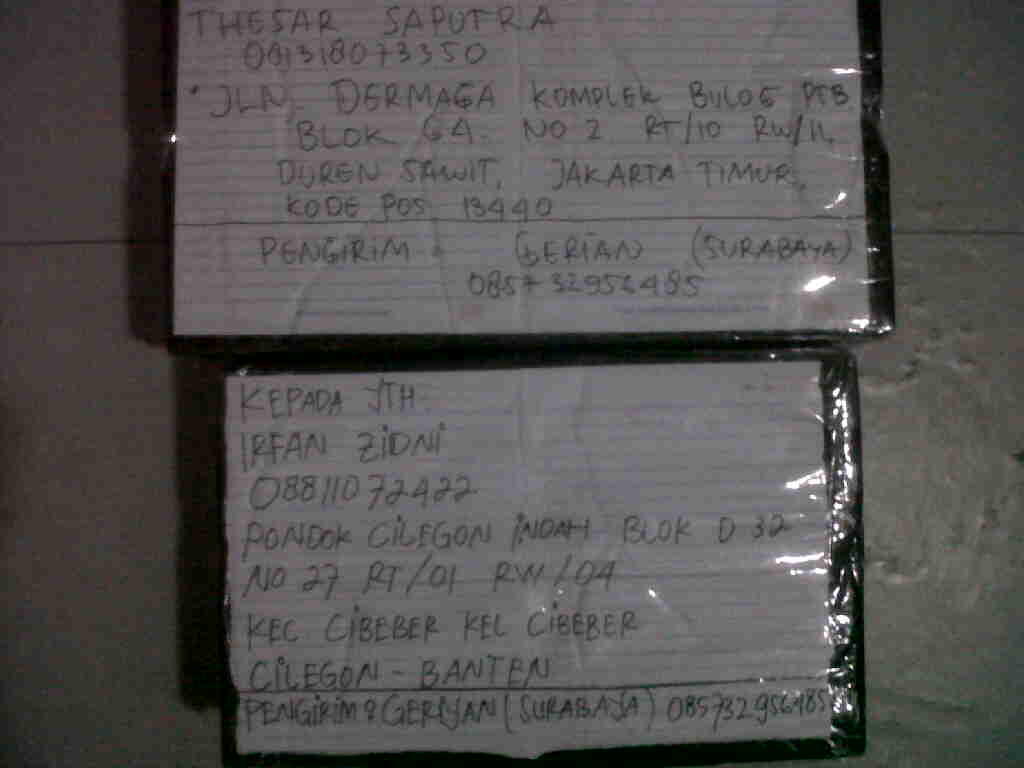 THESAR SAPUTRA
081318073350
JLN. DERMAGA KOMPLEK BULOG PTB
BLOK G4. NO 2 RT/10 RW/11,
DUREN SAWIT, JAKARTA TIMUR,
KODE POS 13440
PENGIRIM : GERIAN (SURABAYA)
085732956485
KEPADA YTH.
IRFAN ZIDNI
08811072422
PONDOK CILEGON INDAH BLOK D 32
NO 27 RT/01 RW/04
KEC CIBEBER KEL CIBEBER
CILEGON - BANTEN
PENGIRIM : GERIYAN (SURABAYA) 085732956485